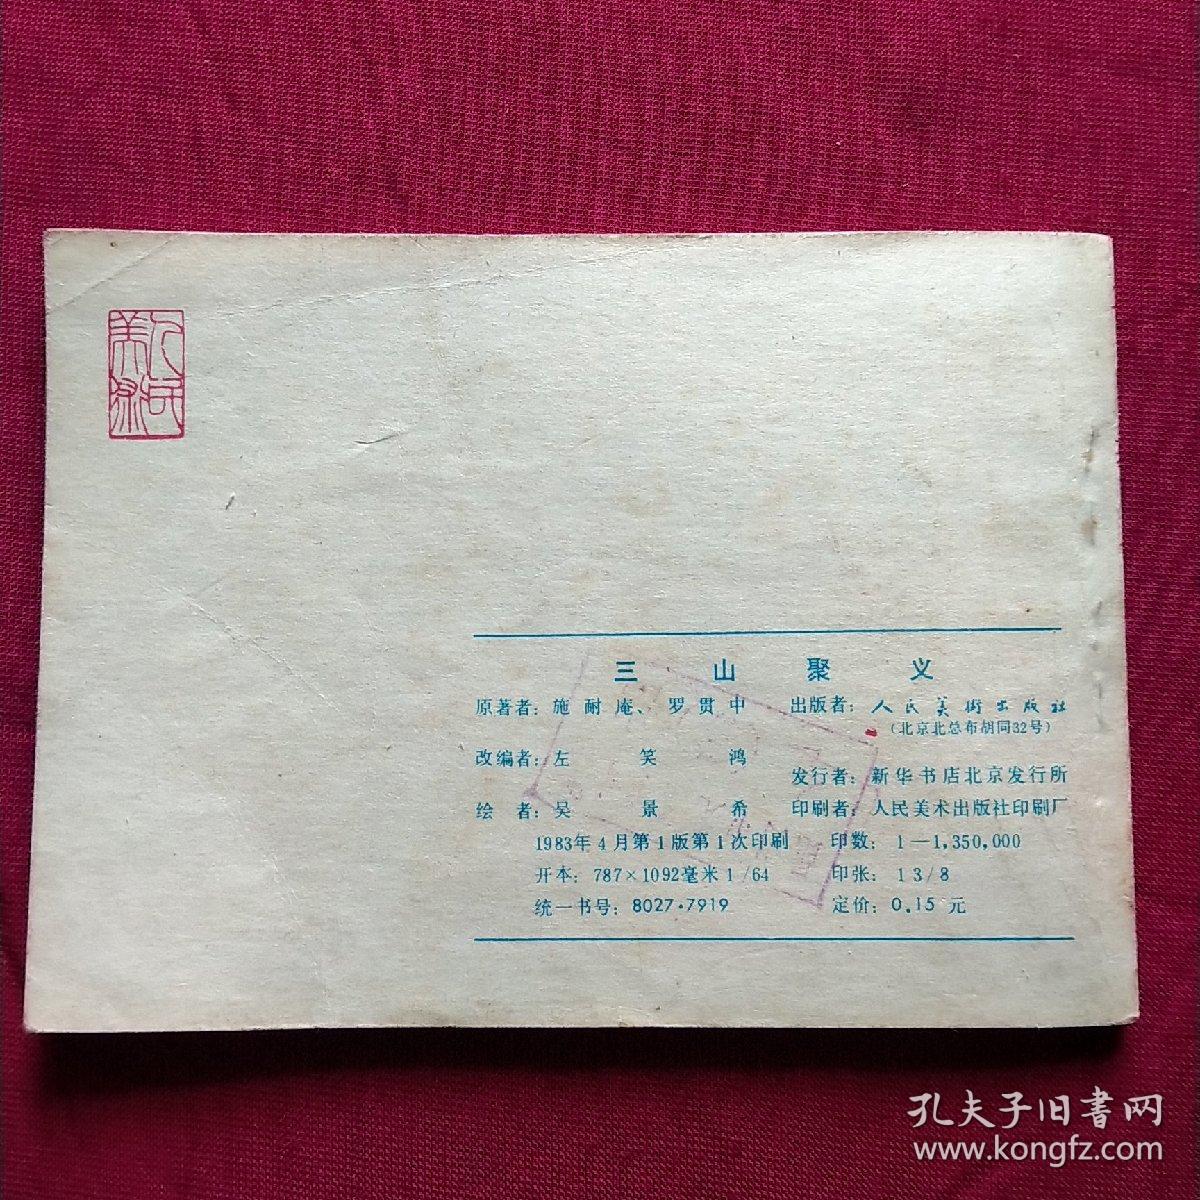 人民美术
三山聚义
原著者：施耐庵、罗贯中
改编者：左笑鸿
绘者：吴景希
出版者：人民美術出版社
（北京北总布胡同32号）
发行者：新华书店北京发行所
印刷者：人民美术出版社印刷厂
1983年4月第1版第1次印刷 印数：1—1,350,000
开本：787×1092毫米1/64 印张：1 3/8
统一书号：8027·7919 定价：0.15元
孔夫子旧書网
www.kongfz.com